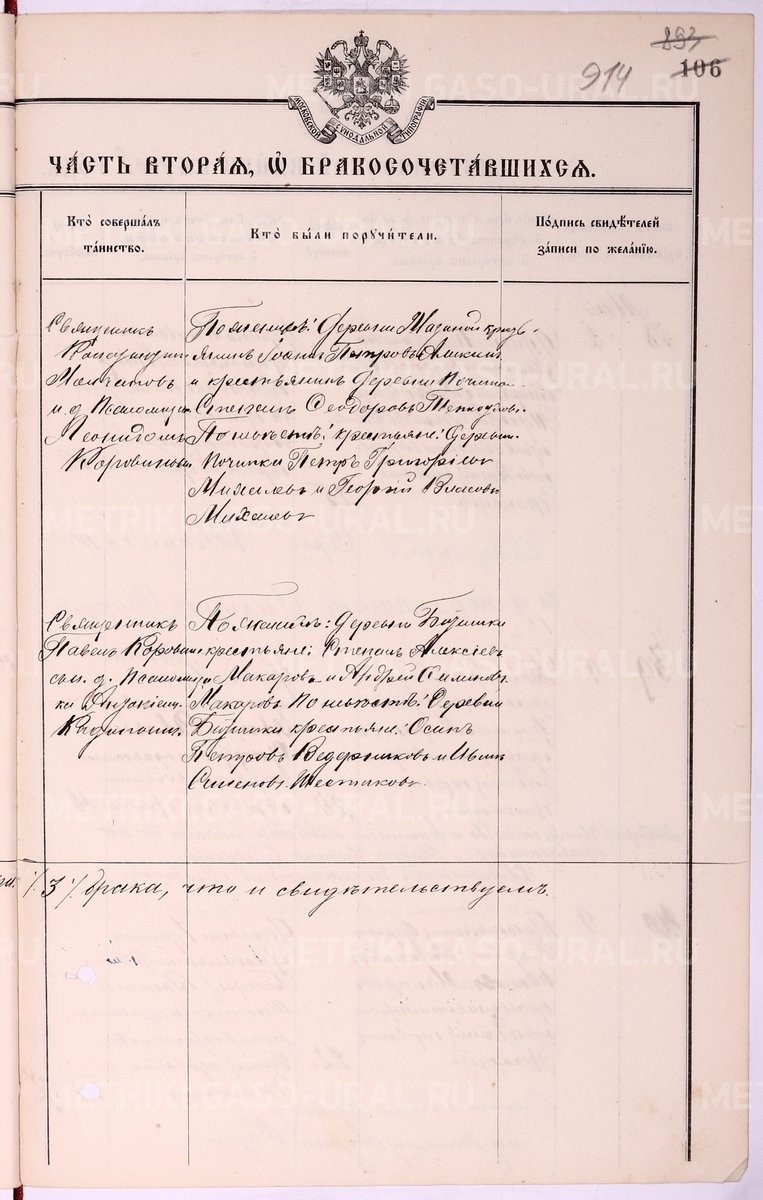 893
914
106
МОСКОВСКОЙ СѴНОДАЛЬНОЙ ТИПОГРАФІИ
ЧА́СТЬ ВТОРА́Я, Ѿ БРАКОСОЧЕТА́ВШИХСЯ.
Кто̀ соверша́лъ
та́инство.
Кто̀ бы́ли поручи́тели.
По́дпись свидѣ́телей
за́писи по жела́нїю.
Священникъ
Молчановъ
и. д. Псаломщи-
Леонидомъ
Коровинымъ
По женихѣ: Деревни крес-
янинъ Іоаннъ Петровъ
и крестьянинъ деревни Почин
Стефанъ Ѳеодоровъ
По невѣстѣ: крестьяне: деревни
Починка Петръ Григоріевъ
Михалевъ и Георгій Власовъ
Михалевъ
Священникъ
Павелъ Коровинъ
съ и. д. Псаломщи
ка
По женихѣ: Деревни
крестьяне: Степанъ Алексіевъ
Макаровъ и Андрей
Макаровъ По невѣстѣ: Деревни
крестьяне: Осипъ
Петровъ Ведерниковъ и Иванъ
Семеновъ Шестаковъ.
/.3/. брака, что и свидѣтельствуемъ.
METRIKI.GASO-URAL.RU